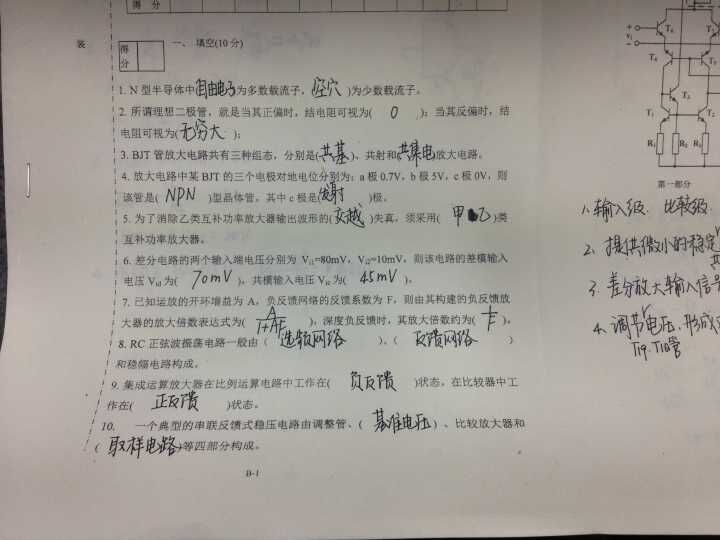 得 分
装
得
分
一、 填空(10 分)
1. N 型半导体中(自由电子)为多数载流子，(空穴 )为少数载流子。
2. 所谓理想二极管，就是当其正偏时，结电阻可视为( 0 )；当其反偏时，结
电阻可视为(无穷大 )；
3. BJT 管放大电路共有三种组态，分别是(共基)、共射和(共集电)放大电路。
4. 放大电路中某 BJT 的三个电极对地电位分别为：a 极 0.7V，b 极 5V，c 极 0V，则
该管是( NPN )型晶体管，其中 c 极是(发射 )极。
5. 为了消除乙类互补功率放大器输出波形的(交越)失真，须采用( 甲乙)类
互补功率放大器。
6. 差分电路的两个输入端电压分别为 Vi1=80mV，Vi2=10mV，则该电路的差模输入
电压 Vid 为( 70mV )，共模输入电压 Vic 为( 45mV )。
7. 已知运放的开环增益为 A，负反馈网络的反馈系数为 F，则由其构建的负反馈放
大器的放大倍数表达式为( A/1+AF )，深度负反馈时，其放大倍数约为( 1/F )。
8. RC 正弦波振荡电路一般由( 选频网络 )、( 反馈网络 )、( )
和稳幅电路构成。
9. 集成运算放大器在比例运算电路中工作在( 负反馈 )状态，在比较器中工
作在( 正反馈 )状态。
10. 一个典型的串联反馈式稳压电路由调整管、( 基准电压 )、比较放大器和
( 取样电路)等四部分构成。
B-1
T6
T5
T4
T3
T1 T2
R1 R2 R3
第一部分
1. 输入级. 比较级.
2. 提供微小的稳定
3. 差分放大输入信号
4. 调节电压.形成
T19.T10管